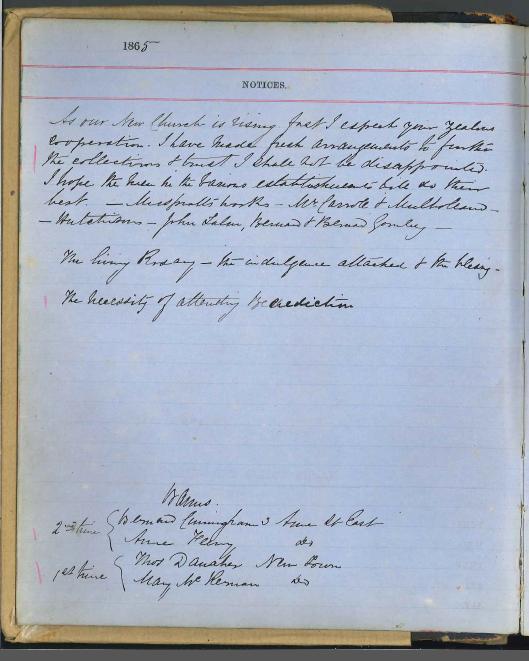 1865
NOTICES.
As our New Church is rising fast I expect your zealous
cooperation. I have made fresh arrangements to further
the collections & trust I shall not be disappointed.
I hope the men in the various establishments will do their
best. — works – Mr Carroll & Mulholland –
– Hutchison – John Bernard & Bernard –
The living Rosary – the indulgence attached & the blessing –
The necessity of attending Benediction
Banns.
2nd time { Bernard Cunningham 3 Anne St East
Anne Do
1st time { Thos Danaher New Town
Mary McKernan Do